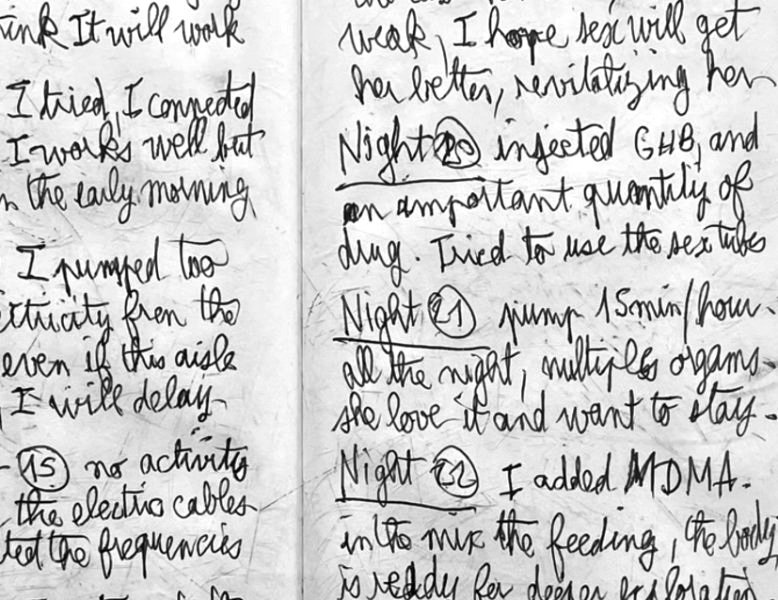 ink It will work
I tried, I connected
I works well but
n the early morning
I pumped too
ctricity from the
even if this aisle
I will delay
15 no activity
the electric cables
ted the frequencies
weak, I hope sex will get
her better, revitalizing her
Night 20 injected GHB, and
an important quantity of
drug. Tried to use the sex tubes
Night 21 pump 15min/hour.
all the night, multiples orgams.
she love it and want to stay.
Night 22 I added MDMA.
in the mix the feeding, the body
is ready for deeper exploration